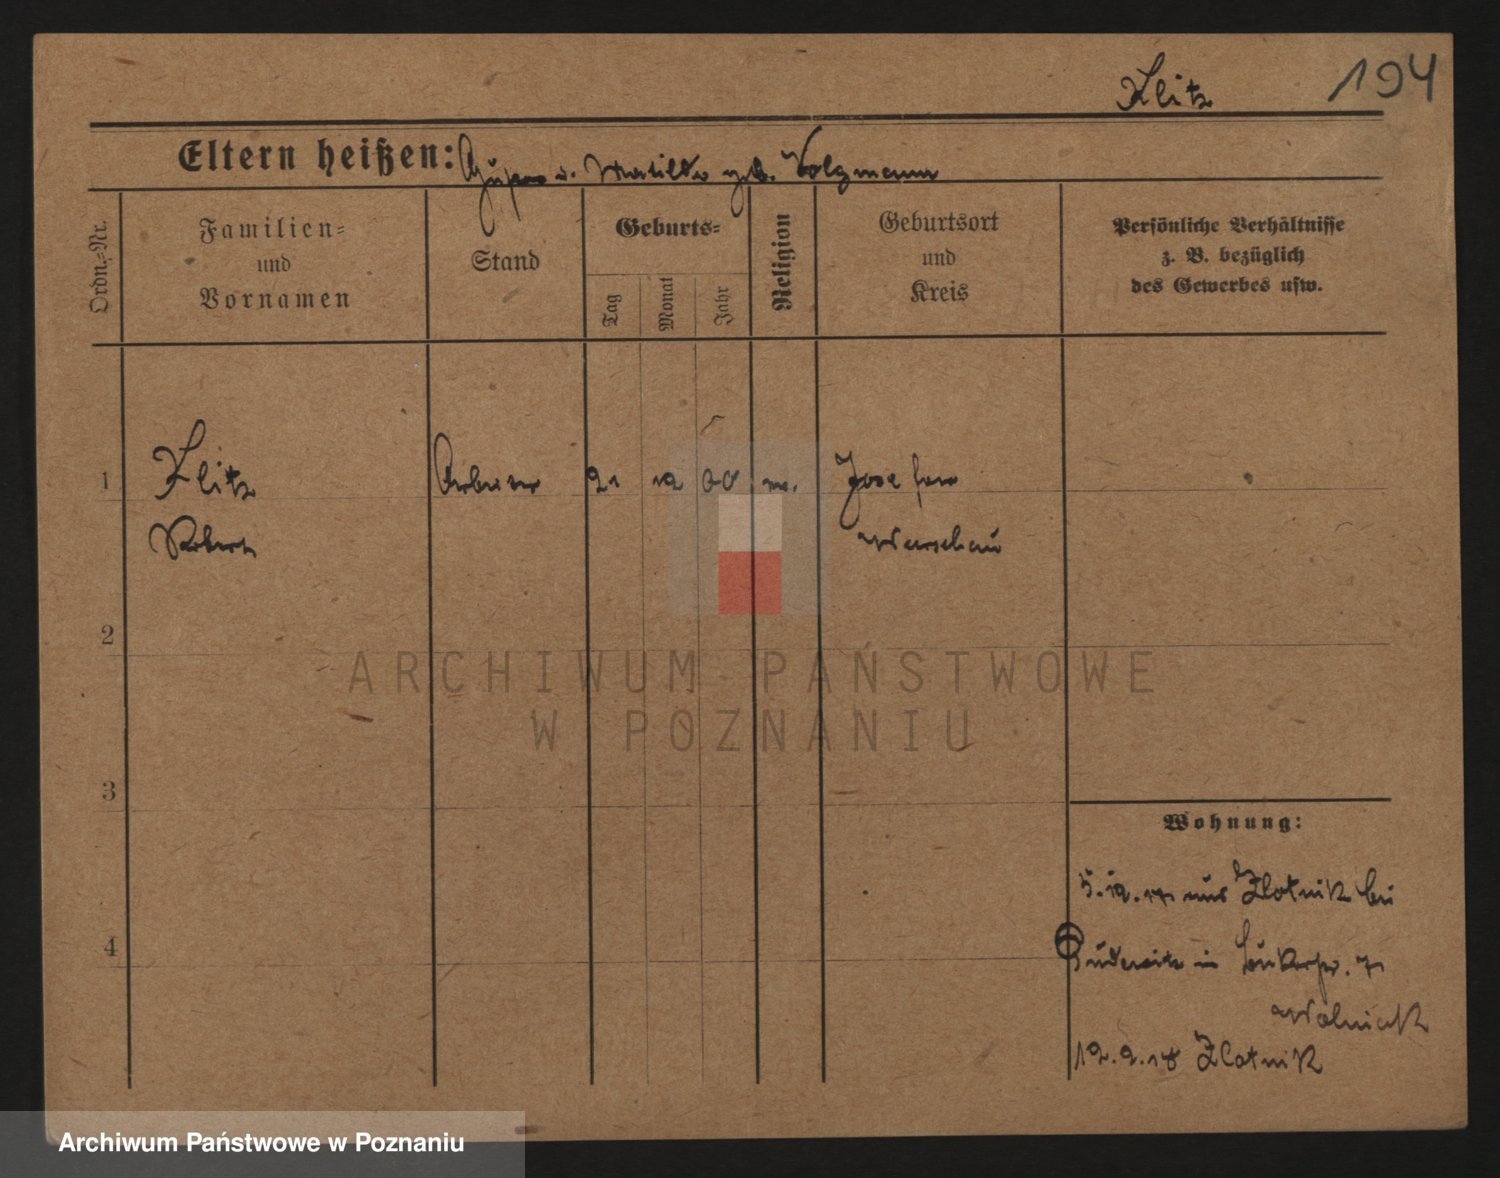 Klitz 194
Eltern heißen: u. geb. Volzmann
Ordn.-Nr.
Familien-
und
Vornamen
Stand
Geburts-
Tag
Monat
Jahr
Religion
Geburtsort
und
Kreis
Persönliche Verhältnisse
z. B. bezüglich
des Gewerbes usw.
1
Klitz Arbeiter 21 12 00
Robert
Warschau
2
ARCHIWUM PAŃSTWOWE
W POZNANIU
3
Wohnung:
5.12.17 aus Zlotnik bei
4
in 7
Wolniak
12.2.18 Zlotnik
Archiwum Państwowe w Poznaniu